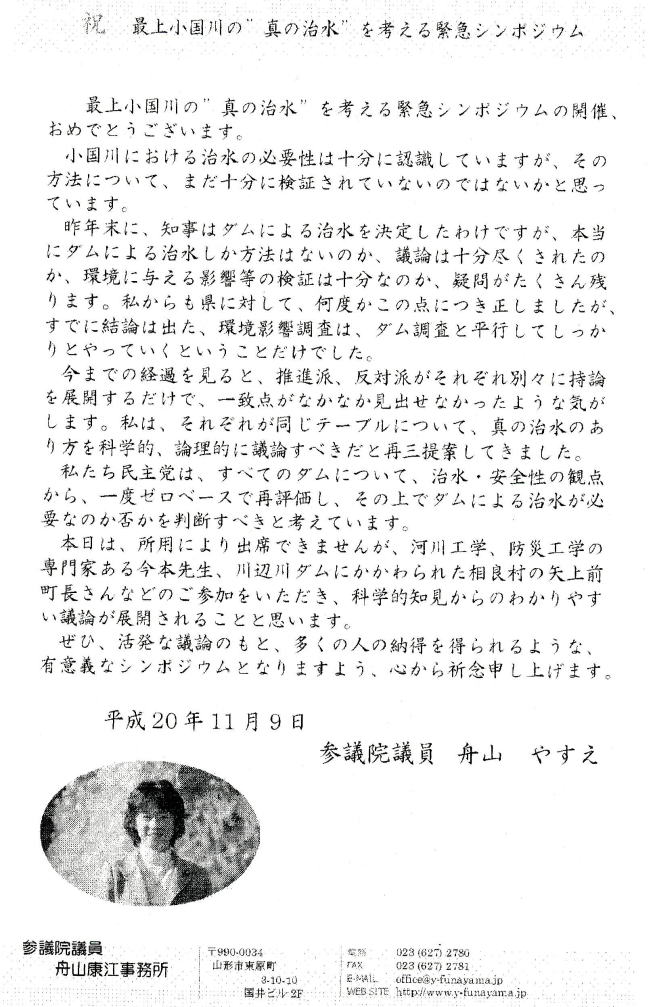 祝　最上小国川の”真の治水”を考える緊急シンポジウム
最上小国川の”真の治水”を考える緊急シンポジウムの開催、
おめでとうございます。
小国川における治水の必要性は十分に認識していますが、その
方法について、まだ十分に検証されていないのではないかと思っ
ています。
昨年末に、知事はダムによる治水を決定したわけですが、本当
にダムによる治水しか方法はないのか、議論は十分尽くされたの
か、環境に与える影響等の検証は十分なのか、疑問がたくさん残
ります。私からも県に対して、何度かこの点につき正しましたが、
すでに結論は出た、環境影響調査は、ダム調査と平行してしっか
りとやっていくということだけでした。
今までの経過を見ると、推進派、反対派がそれぞれ別々に持論
を展開するだけで、一致点がなかなか見出せなかったような気が
します。私は、それぞれが同じテーブルについて、真の治水のあ
り方を科学的、論理的に議論すべきだと再三提案してきました。
私たち民主党は、すべてのダムについて、治水・安全性の観点
から、一度ゼロベースで再評価し、その上でダムによる治水が必
要なのか否かを判断すべきと考えています。
本日は、所用により出席できませんが、河川工学、防災工学の
専門家ある今本先生、川辺川ダムにかかわられた相良村の矢上前
町長さんなどのご参加をいただき、科学的知見からのわかりやす
い議論が展開されることと思います。
ぜひ、活発な議論のもと、多くの人の納得を得られるような、
有意義なシンポジウムとなりますよう、心から祈念申し上げます。
平成20年11月9日
参議院議員　舟山　やすえ
参議院議員
舟山康江事務所
〒990-0034
山形市東原町
3-10-10
国井ビル2F
電話 023 (627) 2780
FAX 023 (627) 2781
E-MAIL office@y-funayama.jp
WEB SITE http://www.y-funayama.jp